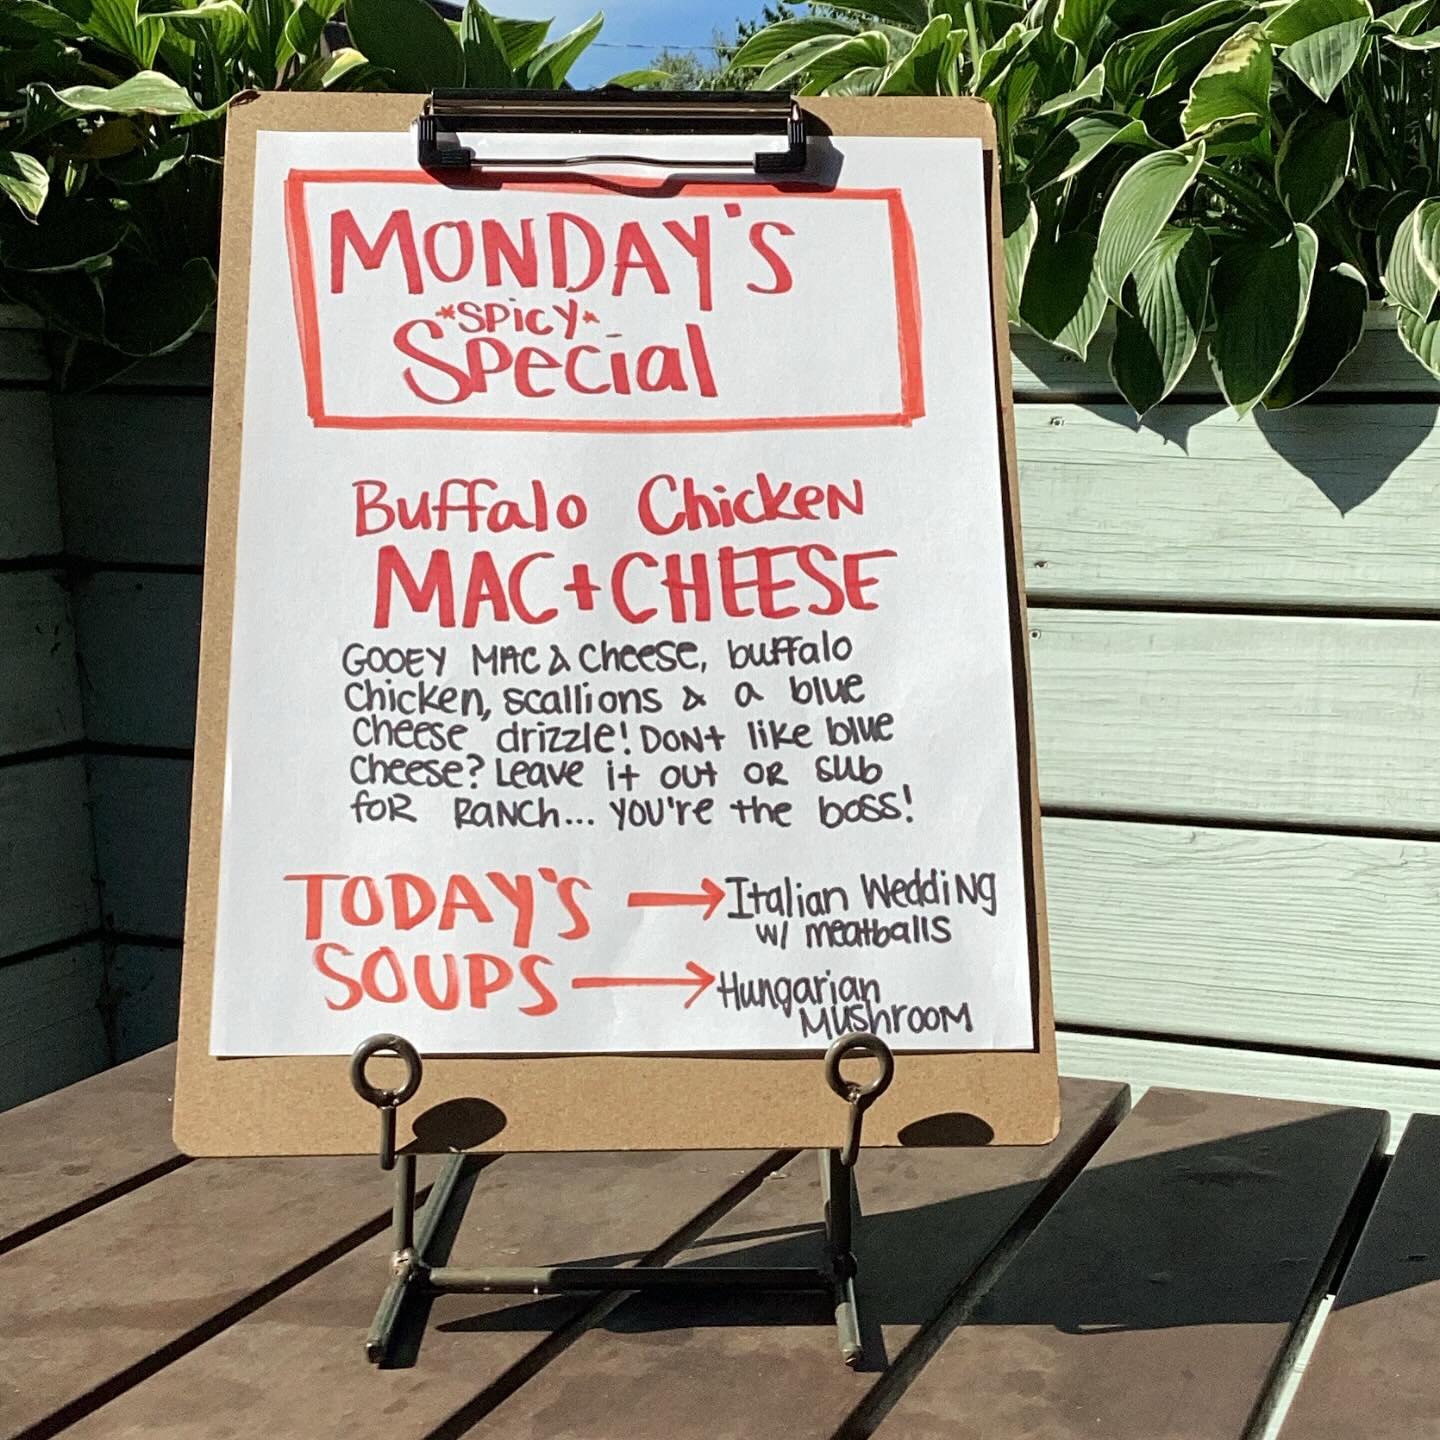 MONDAY'S
*SPICY*
Special
Buffalo Chicken
MAC+CHEESE
GOOEY MAC & cheese, buffalo
chicken, scallions & a blue
cheese drizzle! DON't like blue
cheese? Leave it out OR sub
foR RANCh... YOU'Re the boss!
TODAY'S → Italian Wedding
w/ meatballs
SOUPS → Hungarian
MushrooM